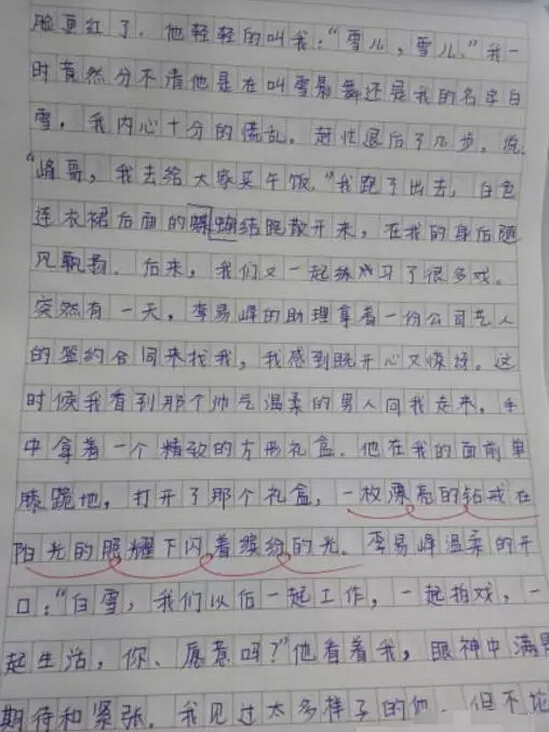 脸更红了。他轻轻的叫我:“雪儿,雪儿。”我一
时竟然分不清他是在叫雪舞还是我的名字白
雪,我内心十分的慌乱。赶忙退后了几步。说
“峰哥,我去给大家买午饭。”我跑了出去,白色
连衣裙后面的蝴蝶结跑散开来,在我的身后随
风飘扬。后来,我们又一起练习了很多戏。
突然有一天,李易峰的助理拿着一份公司艺人
的签约合同来找我,我感到既开心又惊讶。这
时候我看到那个帅气温柔的男人向我走来,手
中拿着一个精致的方形礼盒。他在我的面前单
膝跪地,打开了那个礼盒,一枚漂亮的钻戒在
阳光的照耀下闪着缤纷的光。李易峰温柔的开
口:“白雪,我们以后一起工作,一起拍戏,一
起生活,你、愿意吗?”他看着我,眼神中满是
期待和紧张。我见过太多样子的他,但不论